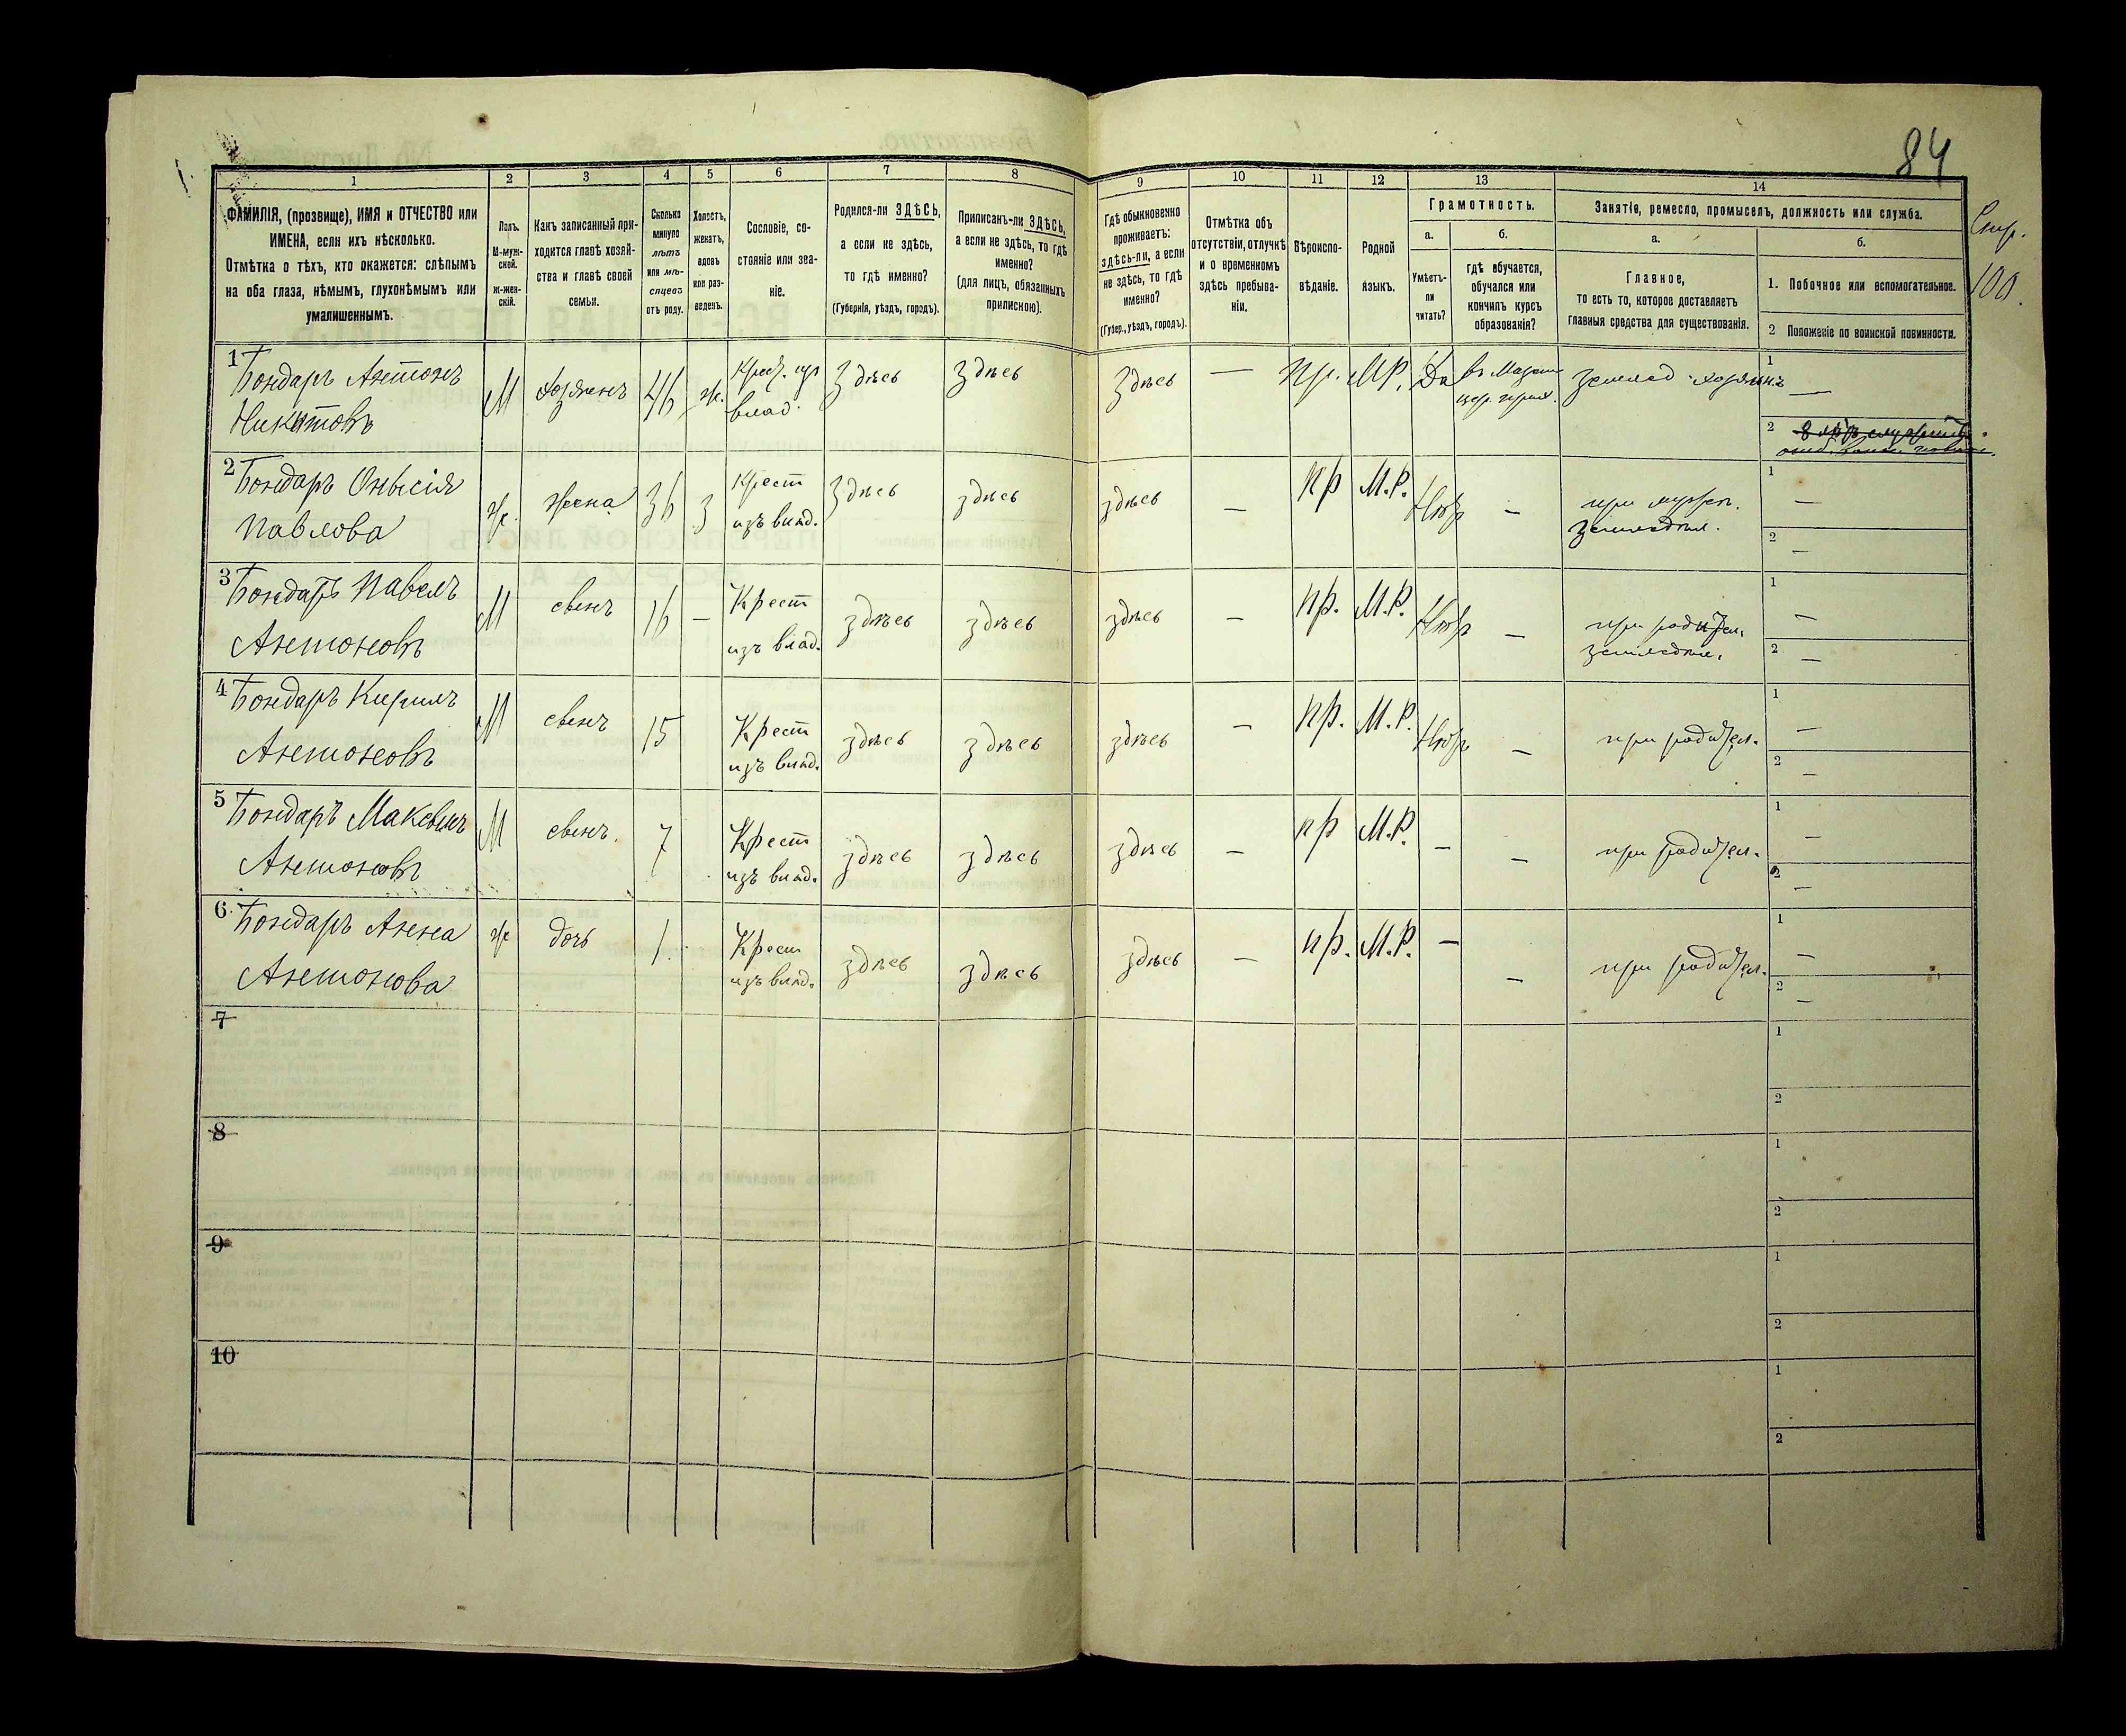 84
Стр.
100.
1
2
3
4
5
6
7
8
9
10
11
12
13
14
ФАМИЛІЯ, (прозвище), ИМЯ и ОТЧЕСТВО или
ИМЕНА, если ихъ нѣсколько.
Отмѣтка о тѣхъ, кто окажется: слѣпымъ
на оба глаза, нѣмымъ, глухонѣмымъ или
умалишеннымъ.
Полъ.
М-муж-
ской.
Ж-жен-
скій.
Какъ записанный при-
ходится главѣ хозяй-
ства и главѣ своей
семьи.
Сколько
минуло
лѣтъ
или мѣ-
сяцевъ
отъ роду.
Холостъ,
женатъ,
вдовъ
или раз-
веденъ.
Сословіе, со-
стояніе или зва-
ніе.
Родился-ли ЗДѢСЬ,
а если не здѣсь,
то гдѣ именно?
(Губернія, уѣздъ, городъ).
Приписанъ-ли ЗДѢСЬ,
а если не здѣсь, то гдѣ
именно?
(для лицъ, обязанныхъ
припискою).
Гдѣ обыкновенно
проживаетъ:
здѣсь-ли, а если
не здѣсь, то гдѣ
именно?
(Губер., уѣздъ, городъ).
Отмѣтка объ
отсутствіи, отлучкѣ
и о временномъ
здѣсь пребыва-
ніи.
Вѣроиспо-
вѣданіе.
Родной
языкъ.
Грамотность.
а.
б.
Умѣетъ-
ли
читать?
гдѣ обучается,
обучался или
кончилъ курсъ
образованія?
Занятіе, ремесло, промыселъ, должность или служба.
а.
б.
Главное,
то есть то, которое доставляетъ
главныя средства для существованія.
1. Побочное или вспомогательное.
2 Положеніе по воинской повинности.
1 Бондаръ Антонъ
Никитовъ
М Хозяинъ 46 ж. Крест. из
влад. здѣсь здѣсь здѣсь — пр. М.Р. Да
цер. приход. землед. хозяинъ 1 —
2
2 Бондаръ Онысія
Павлова
ж. жена 36 з Крест
изъ влад. здѣсь здѣсь здѣсь — пр М.Р. Нѣтъ —
при мужѣ.
земледѣл. 1 —
2 —
3 Бондаръ Павелъ
Антоновъ
М сынъ 16 — Крест
изъ влад. здѣсь здѣсь здѣсь — пр. М.Р. Нѣтъ —
при родител.
земледѣл. 1 —
2 —
4 Бондаръ Кирилъ
Антоновъ
М сынъ 15 Крест
изъ влад. здѣсь здѣсь здѣсь — пр. М.Р. Нѣтъ — при родител. 1 —
2 —
5 Бондаръ Максымъ
Антоновъ
М сынъ. 7 Крест
изъ влад. здѣсь здѣсь здѣсь — пр М.Р. — — при родител. 1 —
2 —
6 Бондаръ Анна
Антонова
ж дочь 1 Крест
изъ влад. здѣсь здѣсь здѣсь — пр. М.Р. — — при родител. 1 —
2 —
7 1
2
8 1
2
9 1
2
10 1
2